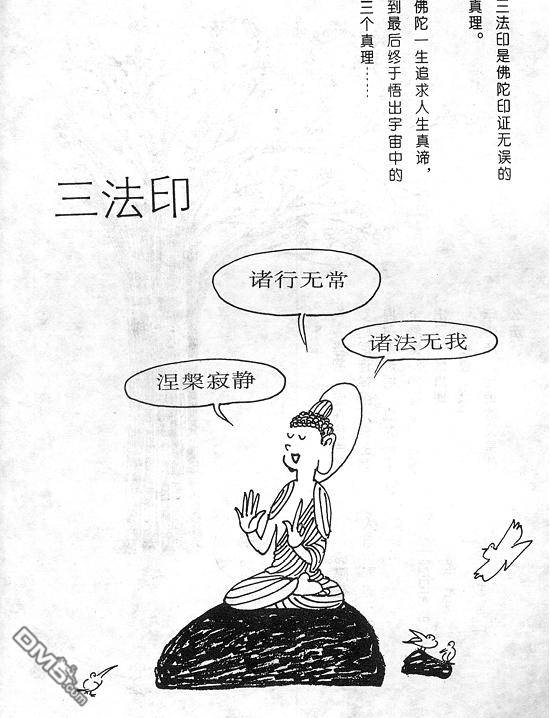 三法印是佛陀印证无误的
真理。
佛陀一生追求人生真谛，
到最后终于悟出宇宙中的
三个真理……
三法印
诸行无常
诸法无我
涅槃寂静
DM5.com